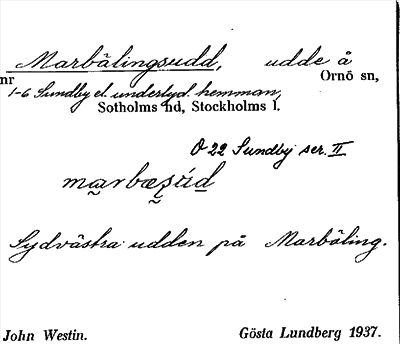 Marbälingsudd, udde å
nr Ornö sn,
1-6 Sundby el. underlyd. hemman,
Sotholms hd, Stockholms l.
O 22 Sundby ser. II
Sydvästra udden på Marbäling.
John Westin. Gösta Lundberg 1937.